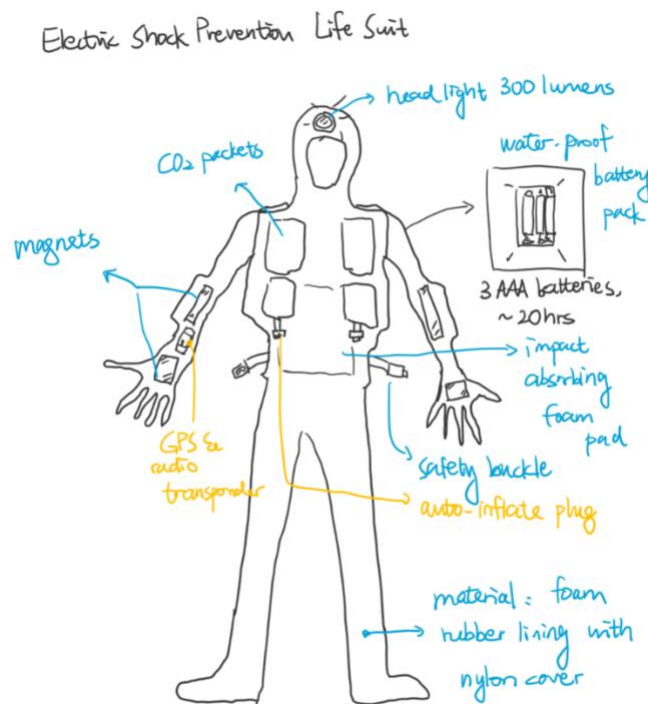 Electric Shock Prevention Life Suit
head light 300 lumens
CO2 packets
water-proof
battery
pack
magnets
3 AAA batteries,
~20hrs
impact
absorbing
foam
pad
GPS &
radio
transponder
safety buckle
auto-inflate plug
material: foam
rubber lining with
nylon cover